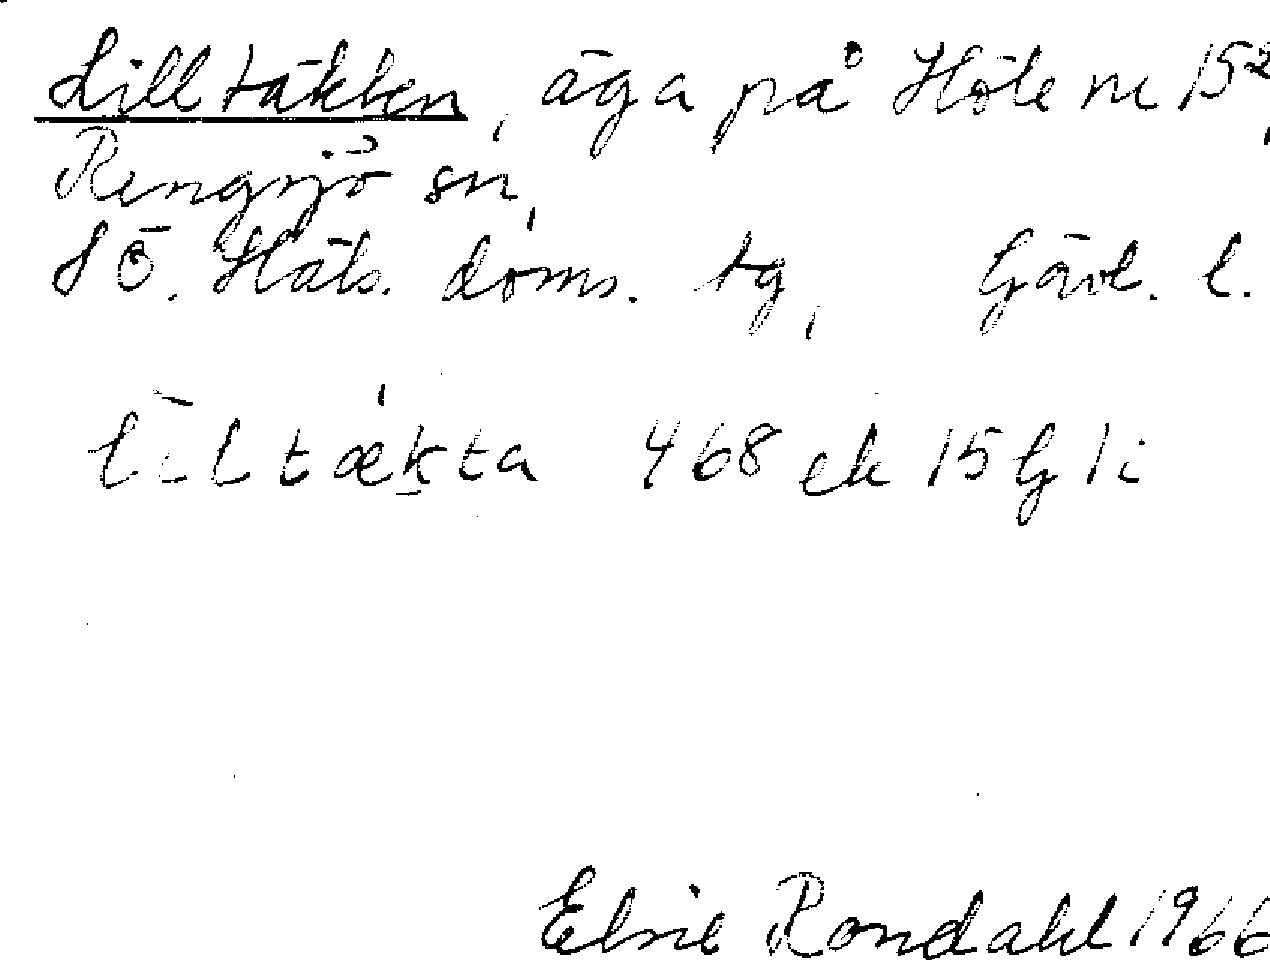 Lilltäkten, äga på Höle nr 15²,
Rengsjö sn,
SÖ. Häls. doms. tg, Gävl. l.
lìltæk̠ta 468 ek 15 Gj 1i
Elsie Rondahl 1966